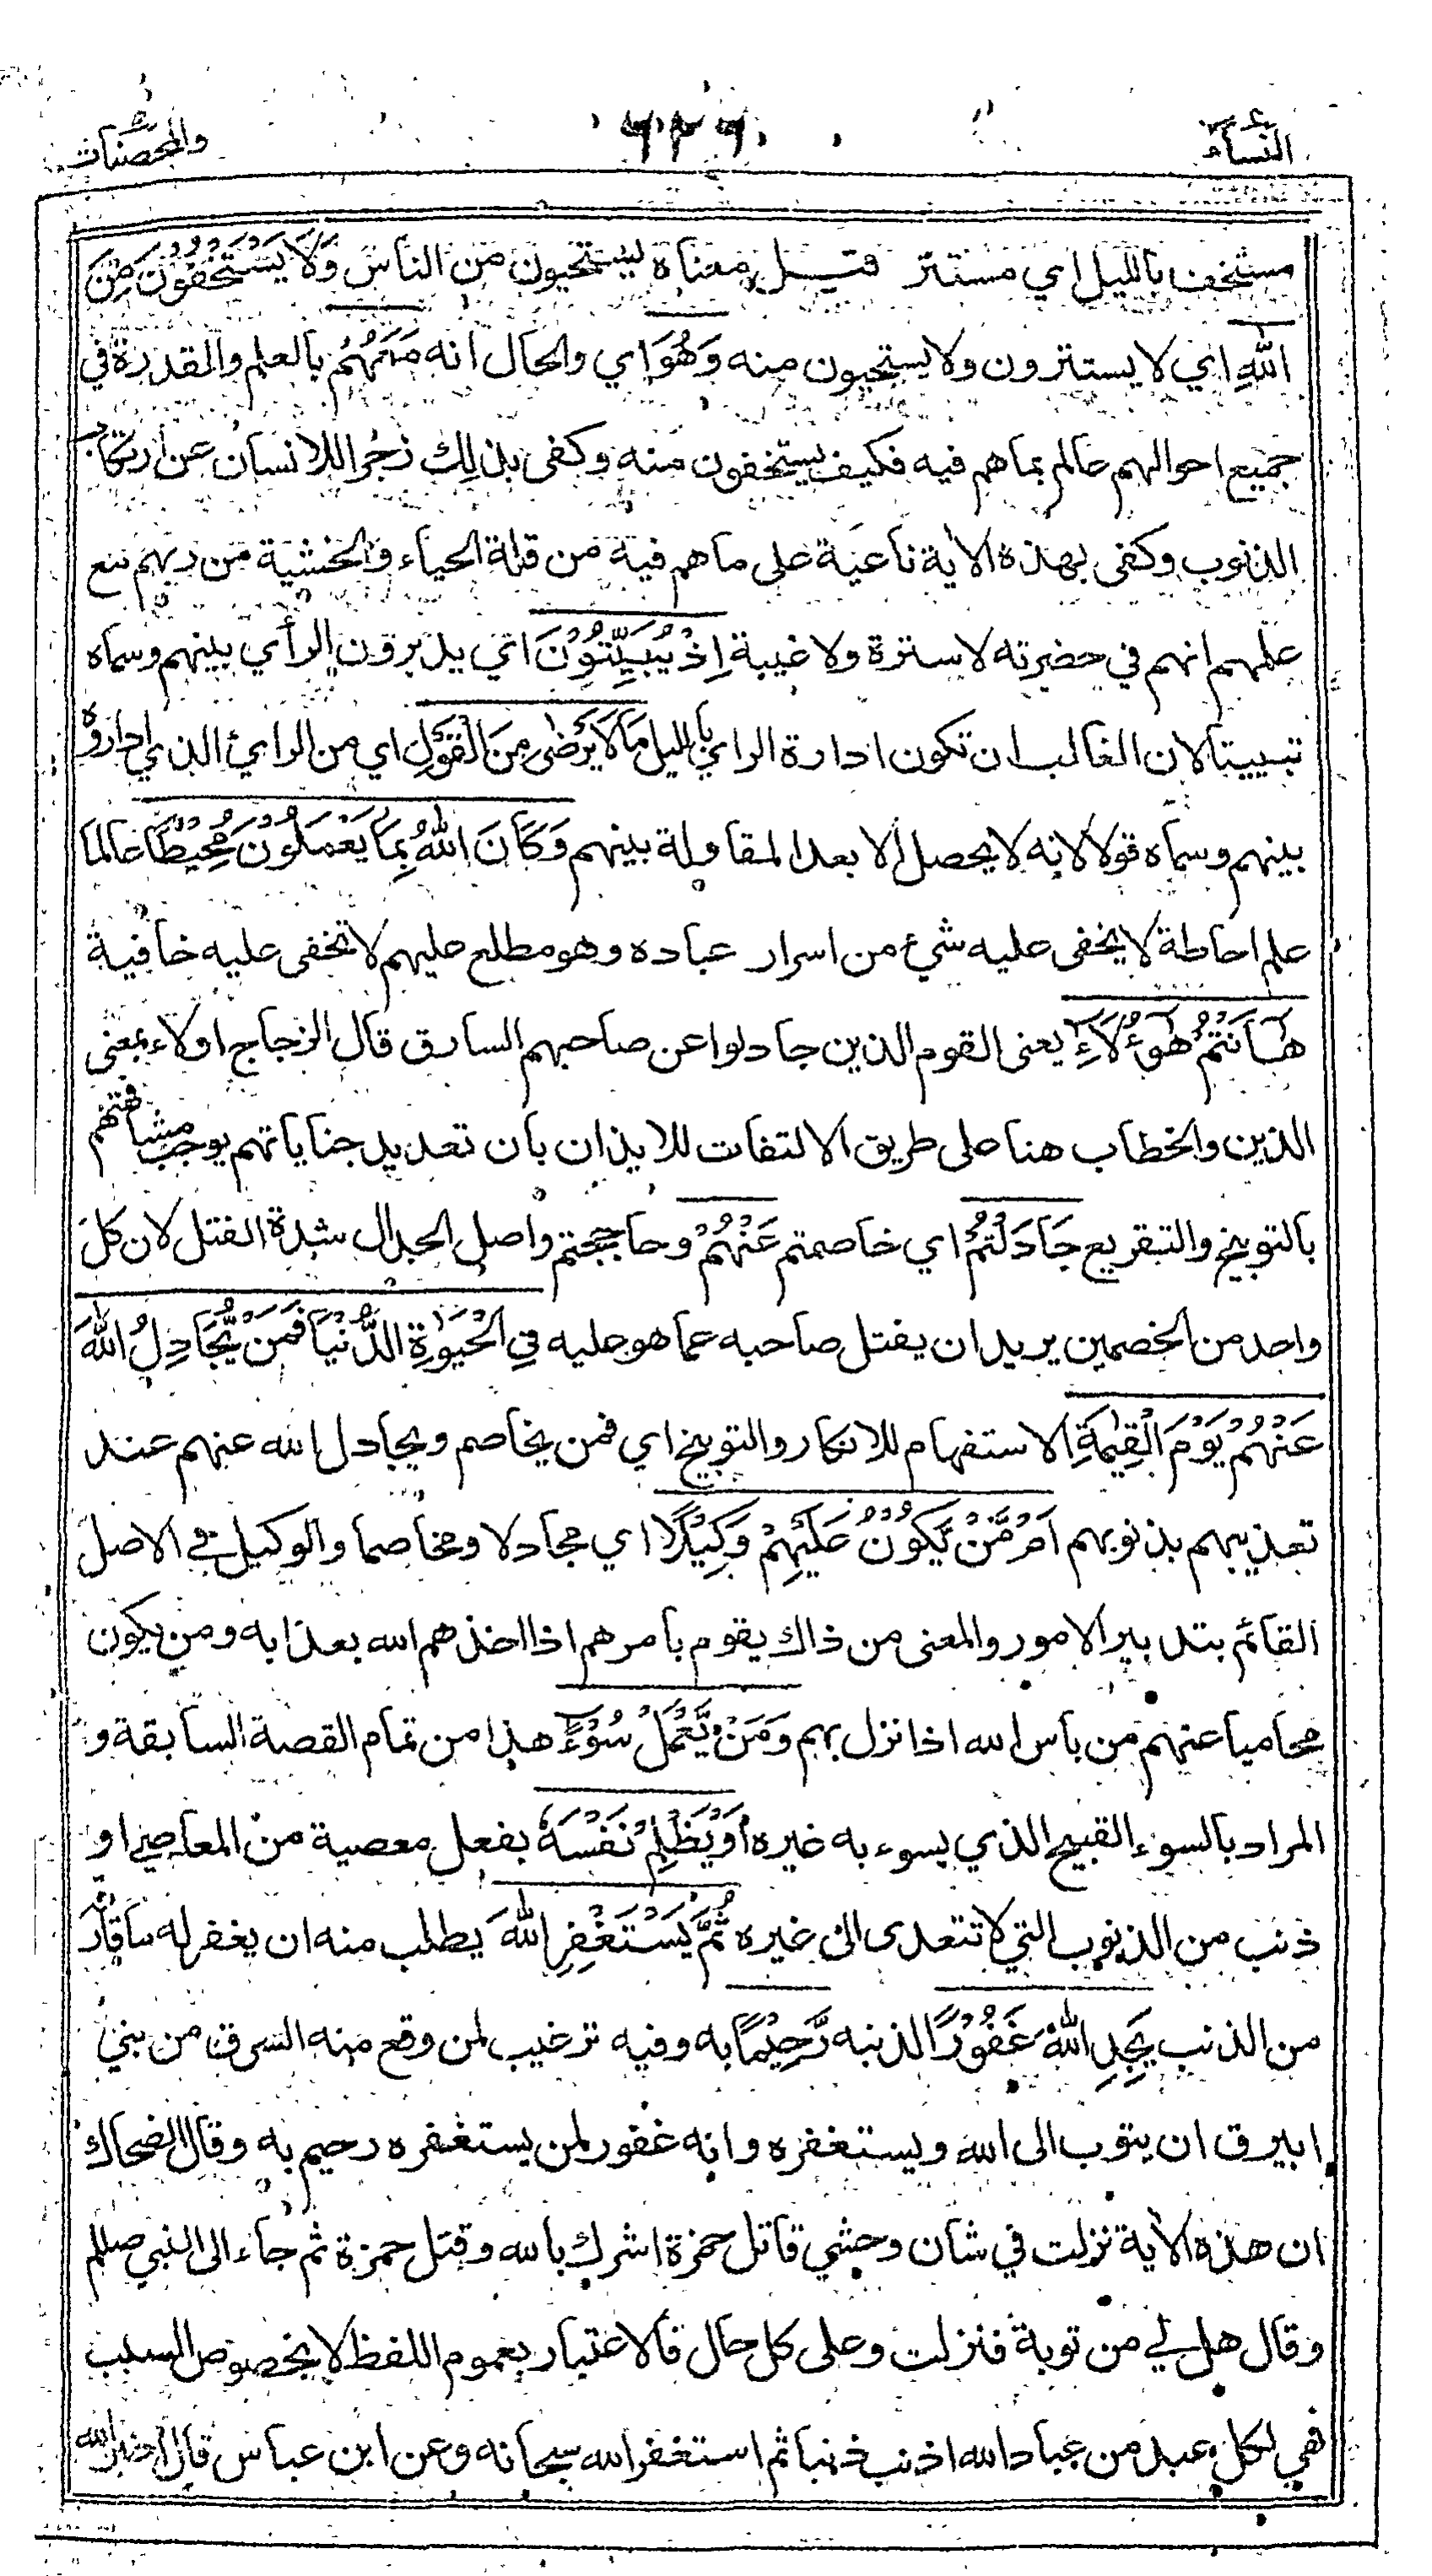 النسآء
٦٣٦
والمحصنات
مستخف بالليل اي مستتر قيل معناه ليستحيون من الناس وَلَا يَسْتَخْفُوْنَ مِنَ
اللهِ اي لا يستترون ولا يستحيون منه وَهُوَ اي والحال انه مَعَهُمْ بالعلم والقدرة في
جميع احوالهم عالم بما هم فيه فكيف يستخفون منه وكفى بذلك زجرا للانسان عن ارتكاب
الذنوب وكفى بهذه الاٰية ناعية على ما هم فيه من قلة الحياء والخشية من ربهم مع
علمهم انهم في حضرته لا سترة ولا غيبة اِذْ يُبَيِّتُوْنَ اي يدبرون الرأي بينهم وسماه
تبييتا لان الغالب ان تكون ادارة الراي بالليل مَا لَا يَرْضٰى مِنَ الْقَوْلِ اي من الرايئ الذي اداروه
بينهم وسماه قولا لانه لا يحصل الا بعد المقاولة بينهم وَكَانَ اللهُ بِمَا يَعْمَلُوْنَ مُحِيْطًا عالما
علم احاطة لا يخفى عليه شيء من اسرار عباده وهو مطلع عليهم لا تخفى عليه خافية
هٰٓاَنْتُمْ هٰٓؤُلَآءِ يعنى القوم الذين جادلوا عن صاحبهم السارق قال الزجاج اولاء بمعنى
الذين والخطاب هنا على طريق الالتفات للايذان بان تعديد جناياتهم يوجب مشافهتهم
بالتوبيخ والتقريع جَادَلْتُمْ اي خاصمتم عَنْهُمْ وحاججتم واصل الجدال شدة الفتل لان كل
واحد من الخصمين يريد ان يفتل صاحبه عما هو عليه فِي الْحَيٰوةِ الدُّنْيَا فَمَنْ يُّجَادِلُ اللهَ
عَنْهُمْ يَوْمَ الْقِيٰمَةِ الاستفهام للانكار والتوبيخ اي فمن يخاصم ويجادل الله عنهم عند
تعذيبهم بذنوبهم اَمْ مَّنْ يَّكُوْنُ عَلَيْهِمْ وَكِيْلًا اي مجادلا ومخاصما والوكيل في الاصل
القائم بتدبير الامور والمعنى من ذاك يقوم بامرهم اذا اخذهم الله بعذابه ومن يكون
محاميا عنهم من باس الله اذا نزل بهم وَمَنْ يَّعْمَلْ سُوْٓءًا هذا من تمام القصة السابقة و
المراد بالسوء القبيح الذي يسوء به غيره اَوْ يَظْلِمْ نَفْسَهٗ بفعل معصية من المعاصي او
ذنب من الذنوب التي لا تتعدى الى غيره ثُمَّ يَسْتَغْفِرِ اللهَ يطلب منه ان يغفر له ما قارف
من الذنب يَجِدِ اللهَ غَفُوْرًا لذنبه رَّحِيْمًا به وفيه ترغيب لمن وقع منه السرق من بني
ابيرق ان يتوب الى الله ويستغفره وانه غفور لمن يستغفره رحيم به وقال الضحاك
ان هذه الاٰية نزلت في شان وحشي قاتل حمزة اشرك بالله وقتل حمزة ثم جاء الى النبي صللم
وقال هل لي من توبة فنزلت وعلى كل حال فالاعتبار بعموم اللفظ لا بخصوص السبب
فهي لكل عبد من عباد الله اذنب ذنبا ثم استغفر الله سبحانه وعن ابن عباس قال اخبر الله